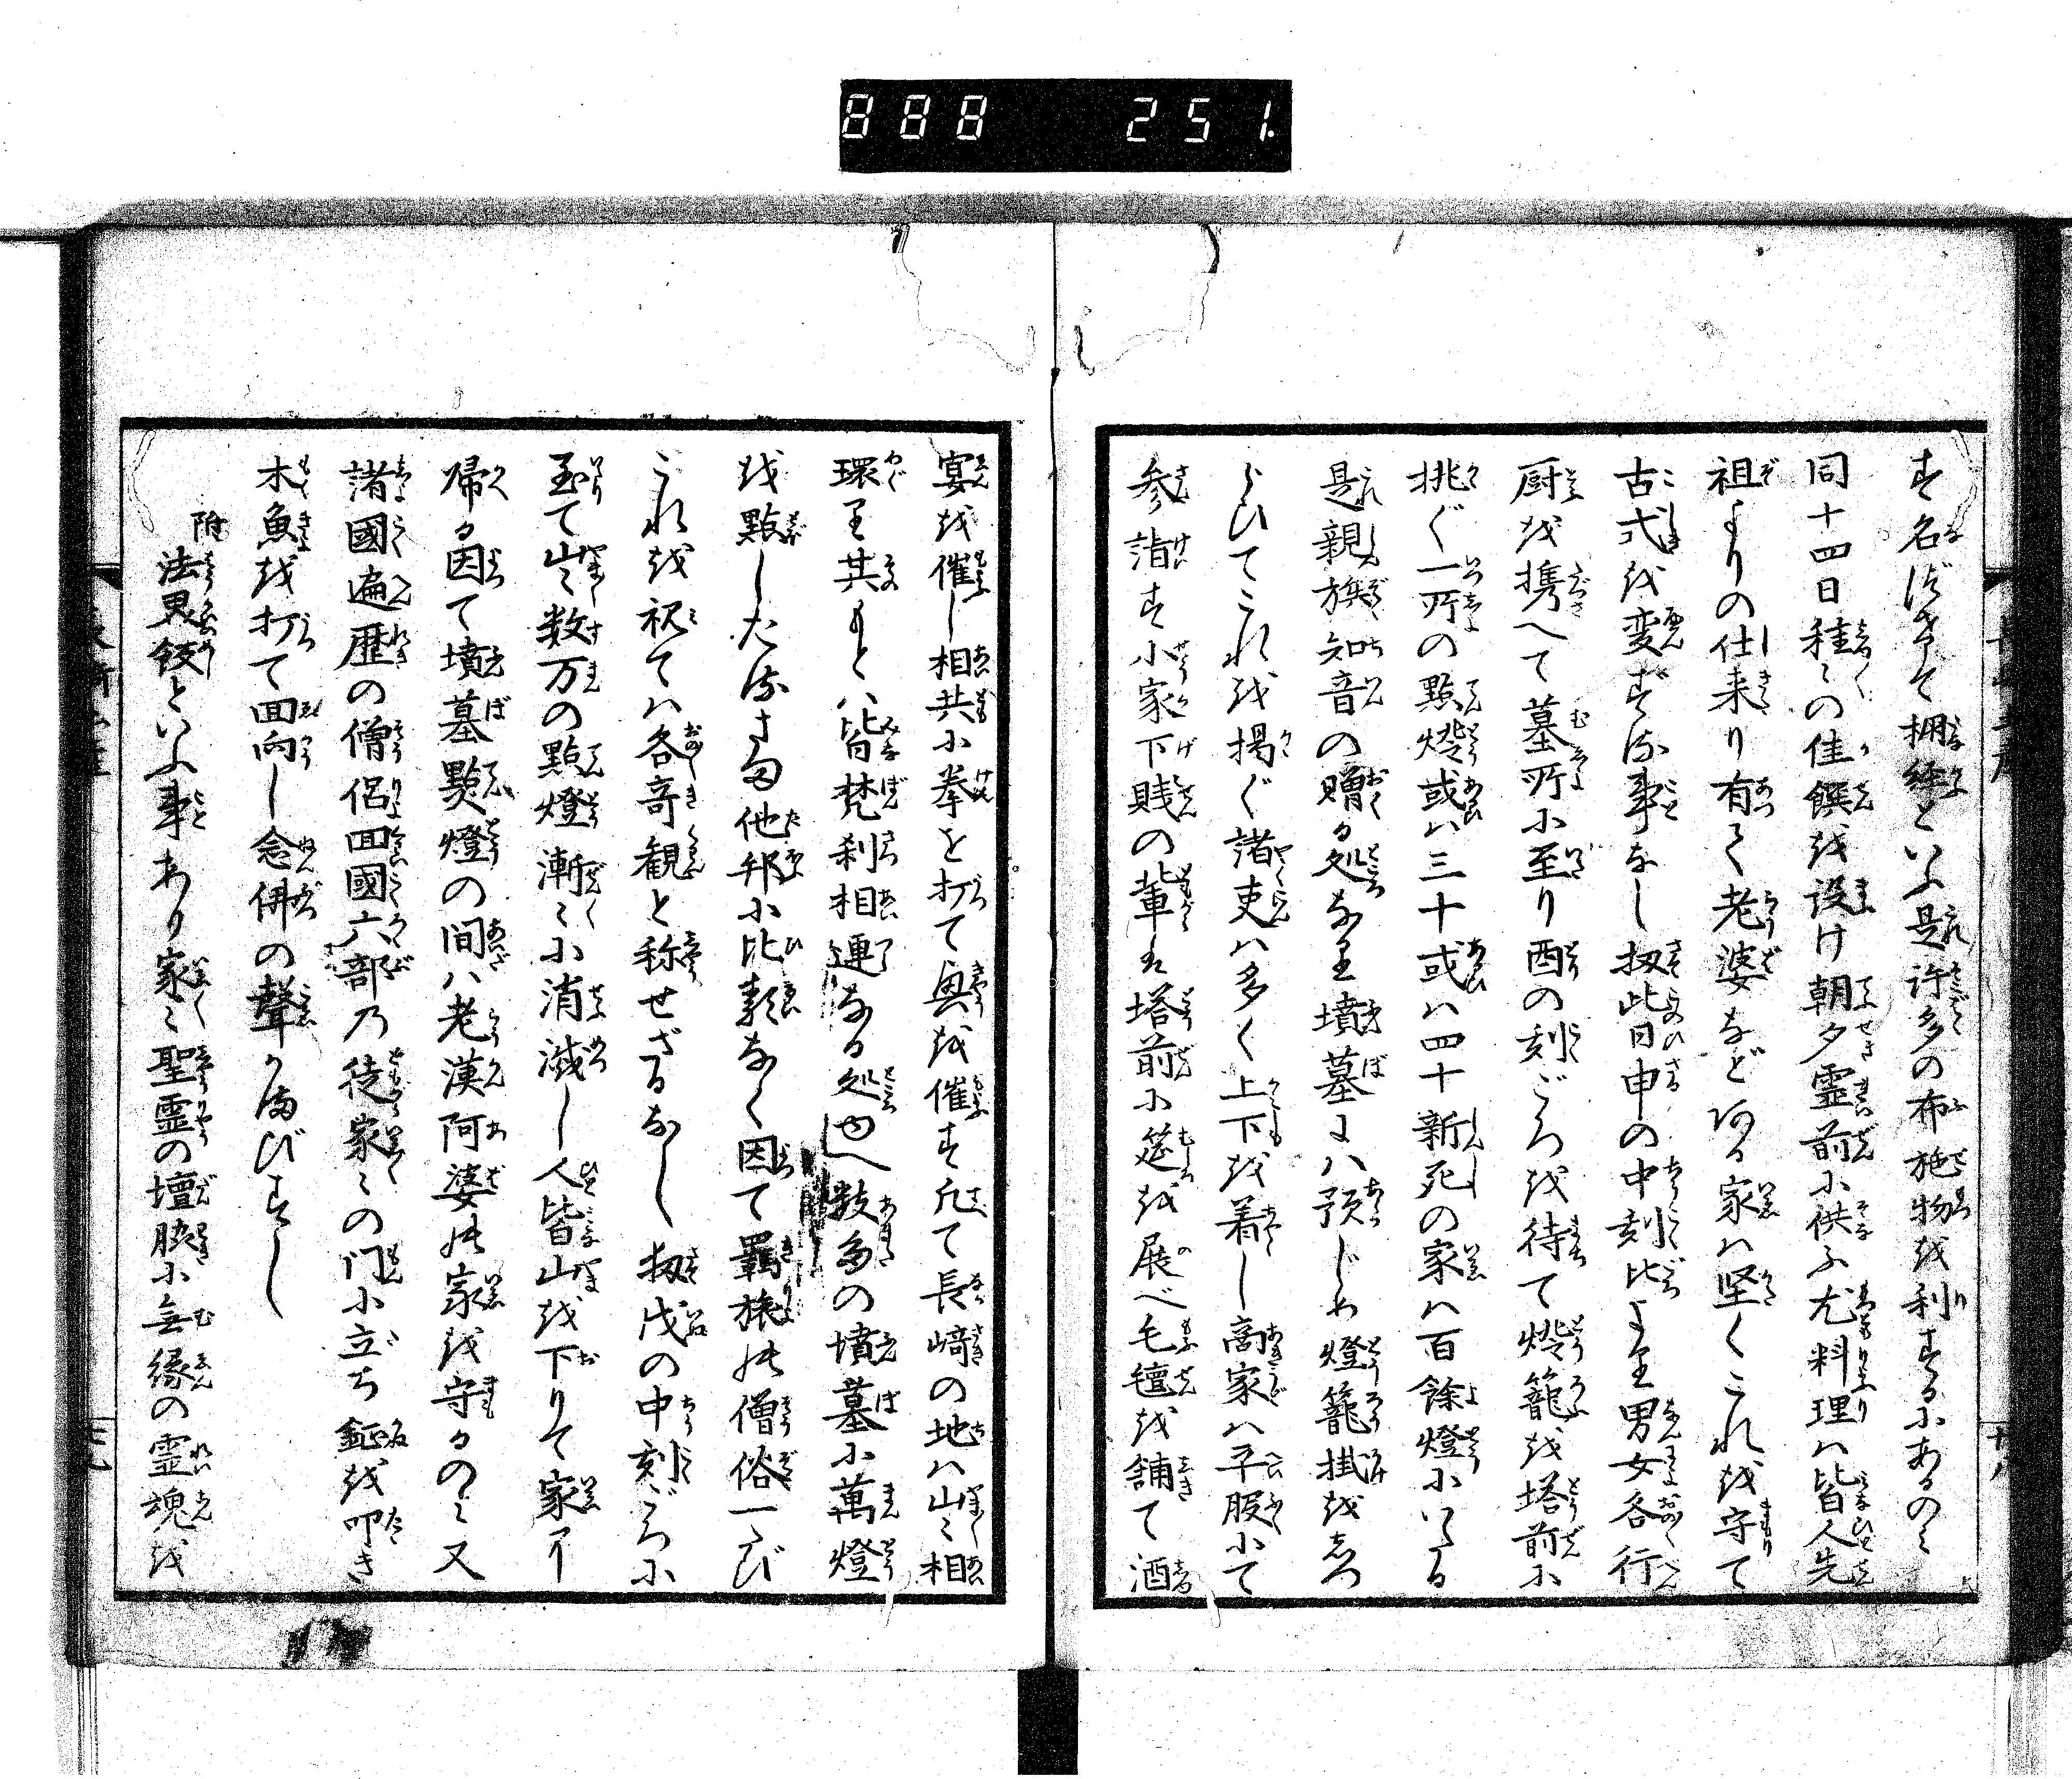 888 251.
す名づけて棚経といふ是許多の布施物を利するにあるのミ
同十四日種〻の佳饌を設け朝夕霊前に供ふ尤料理ハ皆人先
祖よりの仕来り有て老婆など有る家ハ堅くこれを守て
古式を変ずる事なし扨此日申の中刻比より男女各行
厨を携へて墓所に至り酉の刻ごろを待て燈籠を塔前に
挑ぐ一所の點燈或ハ三十或ハ四十新死の家ハ百餘燈にいたる
是親族知音の贈る処なり墳墓にハ預じめ燈籠掛をしつ
らひてこれを掲ぐ諸吏ハ多く上下を着し商家ハ平服にて
参詣す小家下賎の輩も塔前に筵を展べ毛氈を舗て酒
宴を催し相共に拳を打て興を催す凡て長﨑の地ハ山〻相
環り其もとハ皆梵刹相連なる処也へ数多の墳墓に萬燈
を點したるさま他邦に比類なく因て羈旅の僧俗一たび
これを視てハ各奇観と称せざるなし扨戌の中刻ごろに
至て山〻数万の點燈漸〻に消滅し人皆山を下りて家に
帰る因て墳墓點燈の間ハ老漢阿婆の家を守るのミ又
諸國遍歴の僧侶回國六部の徒家〻の门に立ち鉦を叩き
木魚を打て回向し念佛の聲かまびすし
附法界飯といふ事あり家〻聖霊の壇脇に無縁の霊魂を
十八
十九